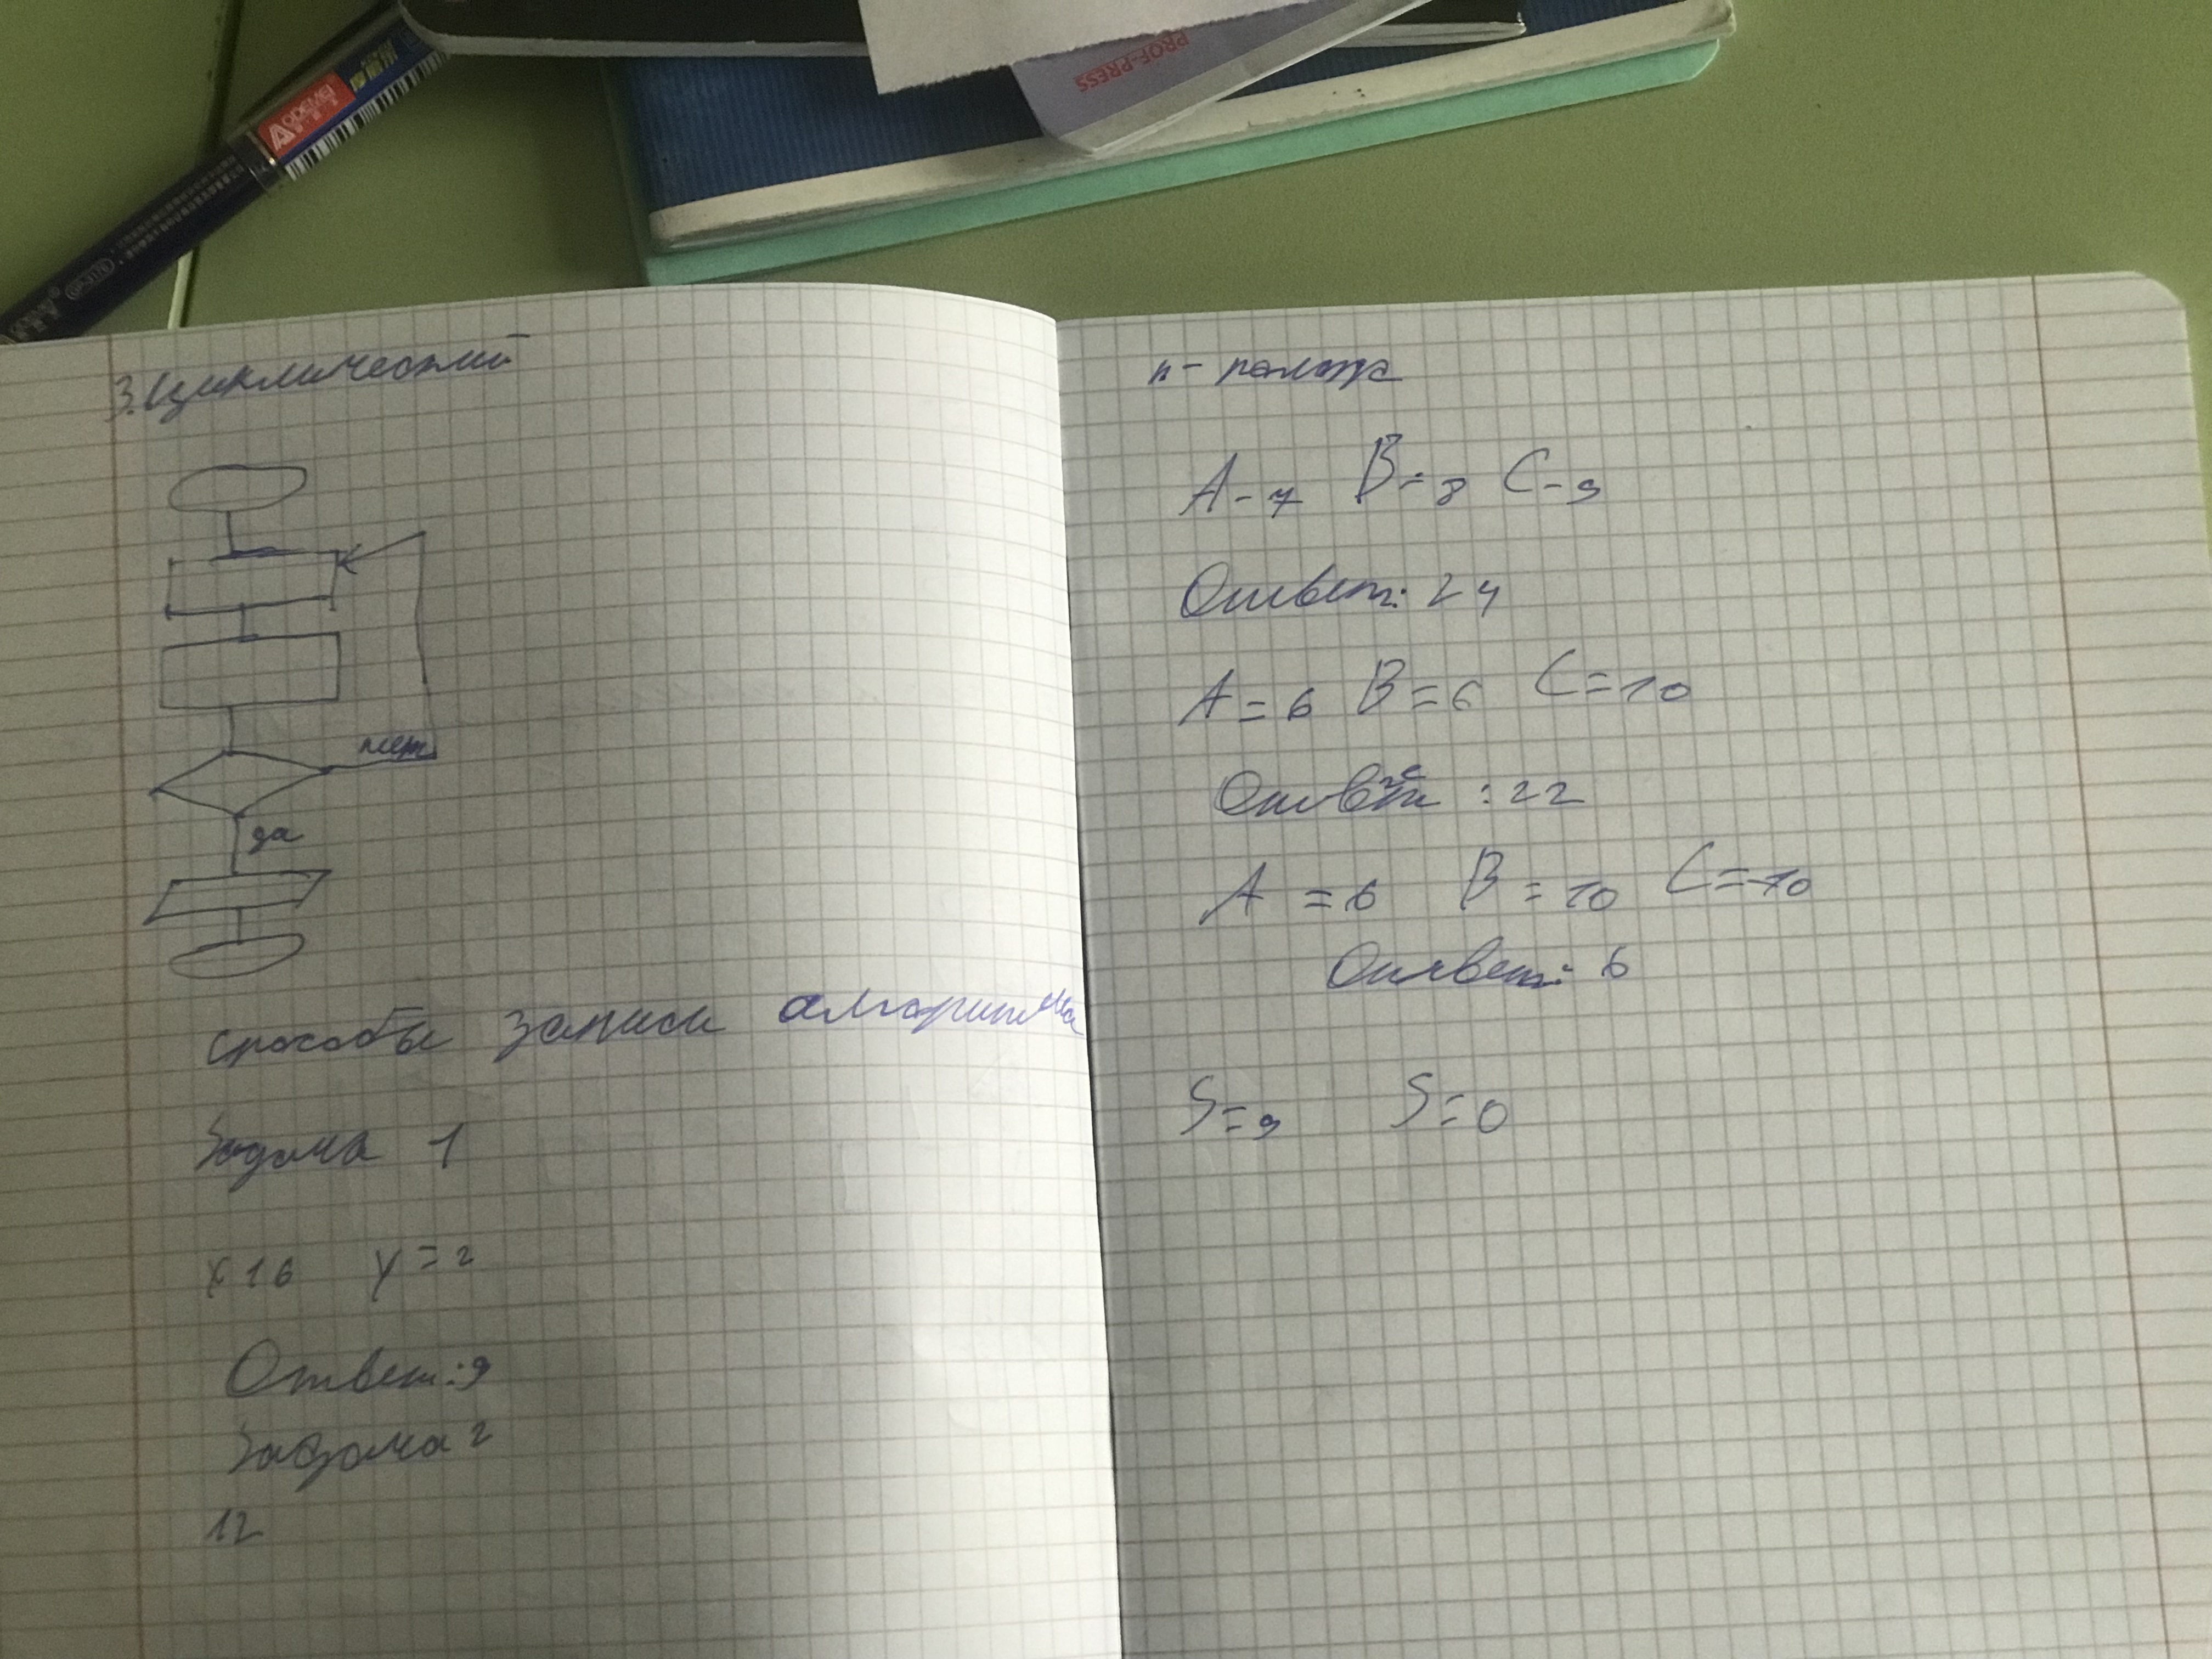 3. Циклический
нет
да
Способы записи алгоритма
Задача 1
X 16 Y = 2
Ответ: 9
Задача 2
12
A - 7 B = 8 C - 9
Ответ: 24
A = 6 B = 6 C = 10
Ответ : 22
A = 6 B = 10 C = 10
Ответ: 6
S = 9 S = 0
PROF-PRESS